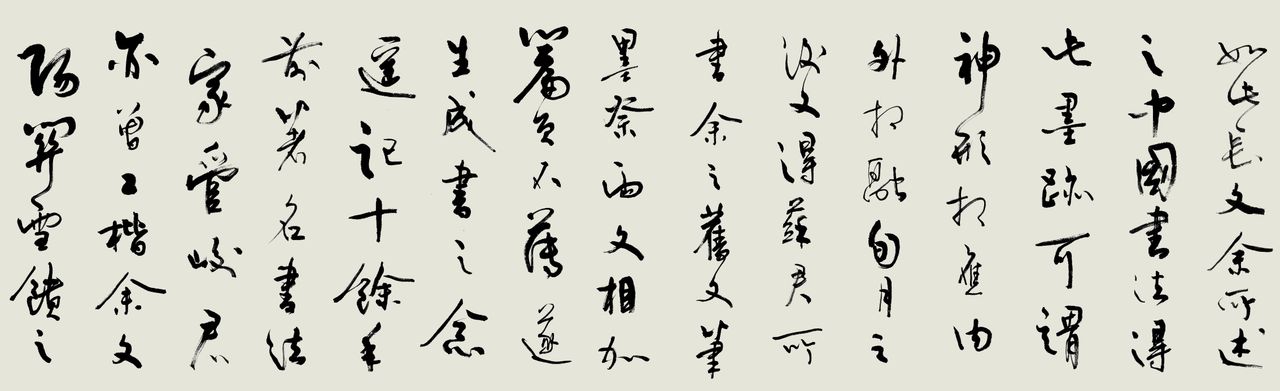 如此長文余所述
之中國書法得
此墨跡可謂
神形相應内
外相融旬月之
後又得蘇君所
書余之舊文筆
墨祭兩文相加
篇頁不薄遂
生成書之念
遥記十餘年
前著名書法
家管峻君
亦曾工楷余文
陽關雪饋之